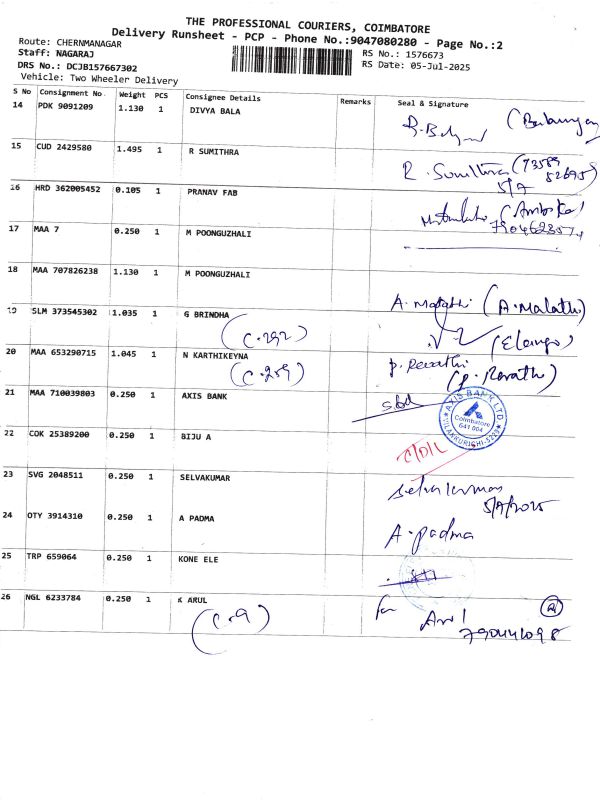 THE PROFESSIONAL COURIERS, COIMBATORE
Delivery Runsheet - PCP - Phone No.:9047080280 - Page No.:2
Route: CHERNMANAGAR
Staff: NAGARAJ
DRS No.: DCJB157667302
Vehicle: Two Wheeler Delivery
RS No.: 1576673
RS Date: 05-Jul-2025
S No Consignment No Weight PCS Consignee Details Remarks Seal & Signature
14 PDK 9091209 1.130 1 DIVYA BALA
15 CUD 2429580 1.495 1 R SUMITHRA R. Sumithra (73589
52695)
5/7
16 HRD 362005452 0.105 1 PRANAV FAB (Ambika)
17 MAA 7 0.250 1 M POONGUZHALI
18 MAA 707826238 1.130 1 M POONGUZHALI A. Malathi (A. Malathi)
19 SLM 373545302 1.035 1 G BRINDHA (Elango)
(C.292)
20 MAA 653290715 1.045 1 N KARTHIKEYNA P. Revathi
(C.259) (P. Revathi)
21 MAA 710039803 0.250 1 AXIS BANK sbd
AXIS BANK LTD.
Coimbatore
641 004
22 COK 25389200 0.250 1 BIJU A
23 SVG 2048511 0.250 1 SELVAKUMAR Selvakumar
5/7/2025
24 OTY 3914310 0.250 1 A PADMA A. padma
25 TRP 659064 0.250 1 KONE ELE
26 NGL 6233784 0.250 1 K ARUL for Arul
(C.9)